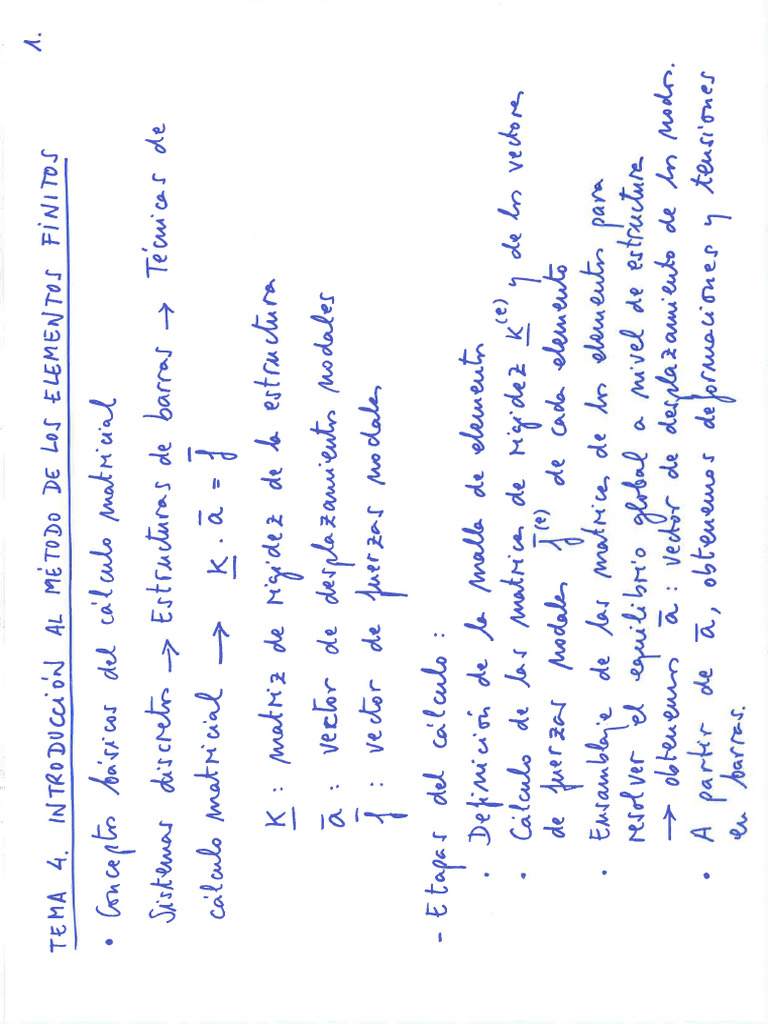 1.
TEMA 4. INTRODUCCIÓN AL MÉTODO DE LOS ELEMENTOS FINITOS
• Conceptos básicos del cálculo matricial
Sistemas discretos → Estructuras de barras → Técnicas de
cálculo matricial → K̲ · a̅ = f̅
K̲ : matriz de rigidez de la estructura
a̅ : vector de desplazamientos nodales
f̅ : vector de fuerzas nodales
- Etapas del cálculo :
• Definición de la malla de elementos
• Cálculo de las matrices de rigidez K̲⁽ᵉ⁾ y de los vectores
de fuerzas nodales f̅⁽ᵉ⁾ de cada elemento
• Ensamblaje de las matrices de los elementos para
resolver el equilibrio global a nivel de estructura
→ obtenemos a̅ : vector de desplazamiento de los nodos.
• A partir de a̅, obtenemos deformaciones y tensiones
en barras.